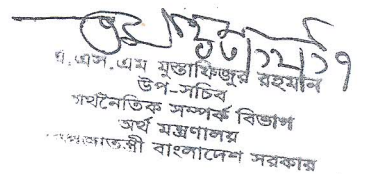 এ.এস.এম মুস্তাফিজুর রহমান
উপ-সচিব
অর্থনৈতিক সম্পর্ক বিভাগ
অর্থ মন্ত্রণালয়
গণপ্রজাতন্ত্রী বাংলাদেশ সরকার